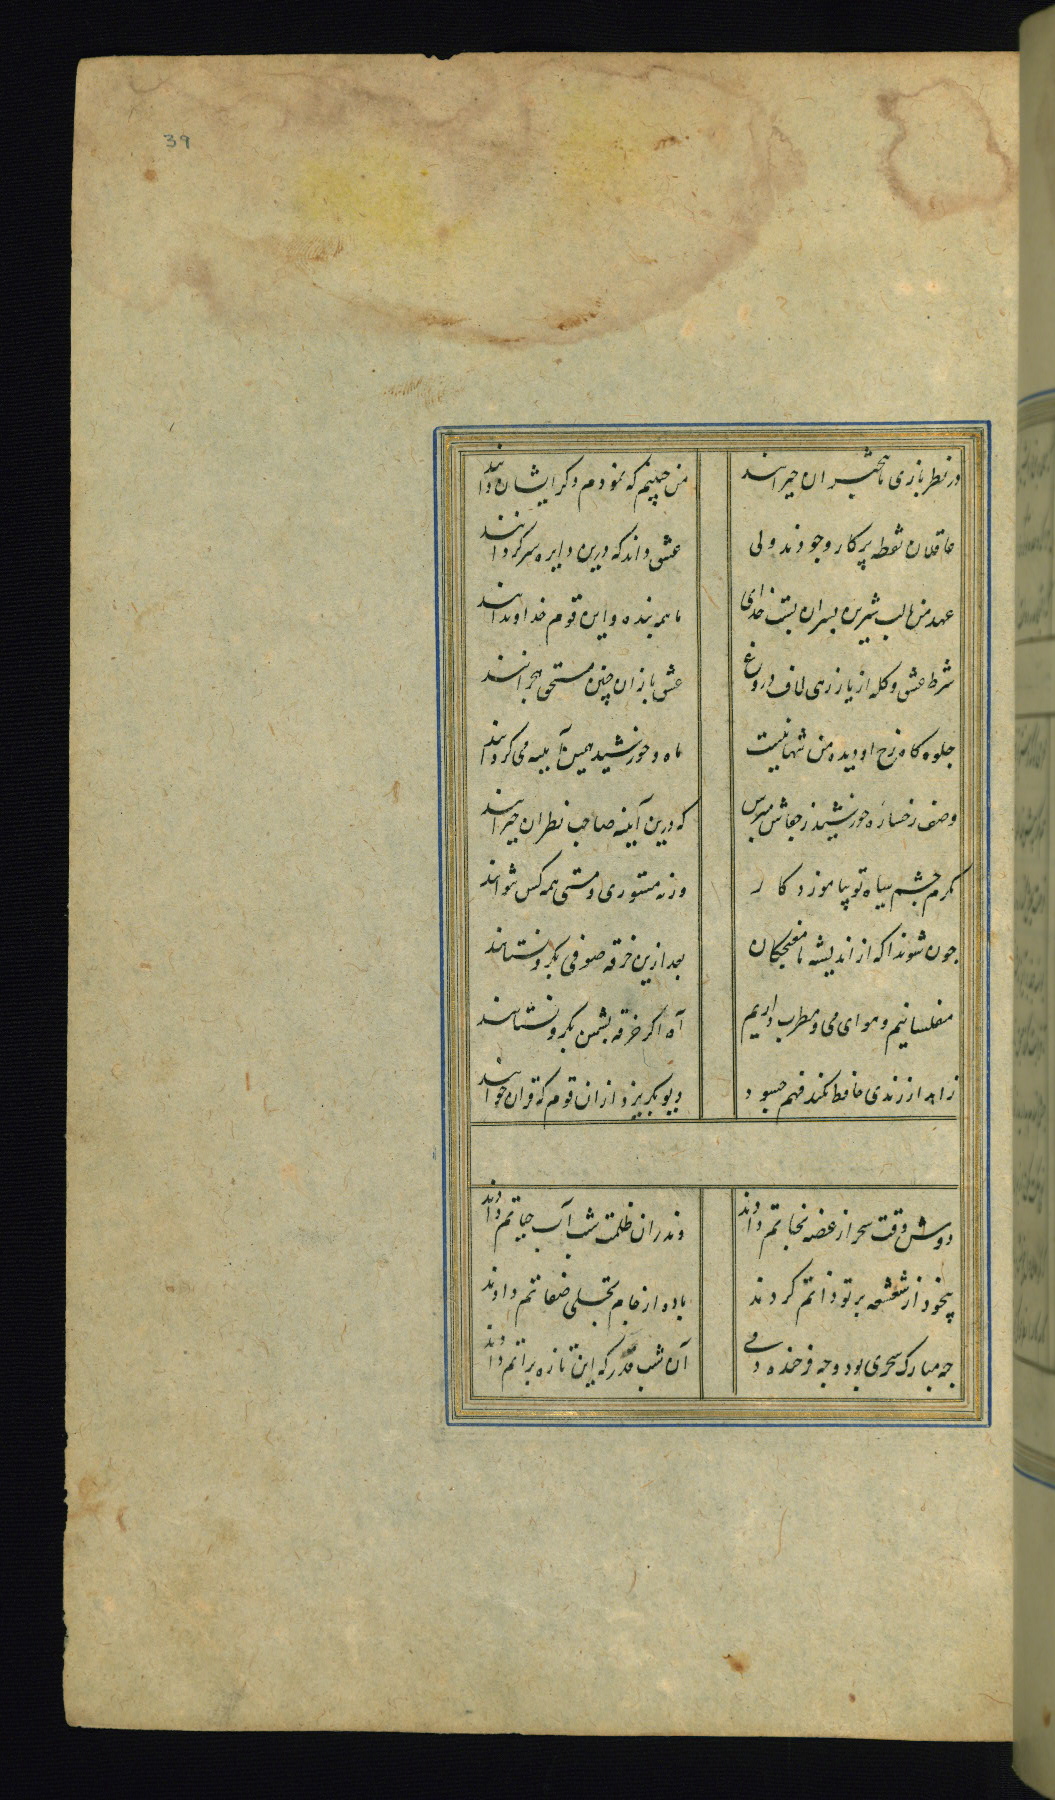 39
در نظر بازی ما بیخبران حیرانند من چنینم که نمودم دگر ایشان دانند
عاقلان نقطه پرکار وجودند ولی عشق داند که درین دایره سرگردانند
عهد من با لب شیرین پسران بست خدای ما همه بنده و این قوم خداوندانند
شرط عشق و کله از یار زهی لاف دروغ عشق بازان چنین مستحق هجرانند
جلوه گاه رخ او دیده من تنها نیست ماه و خورشید همین آینه می گردانند
وصف رخساره خورشید ز خفاش مپرس که درین آینه صاحب نظران حیرانند
کرم چشم سیاه تو بیاموزد کار ورنه مستوری و مستی همه کس نتوانند
چون شوند اکه از اندیشه ما مغبچکان بعد ازین خرقه صوفی بگرو نستانند
مفلسانیم و هوای می و مطرب داریم آه اگر خرقه پشمین بگرو نستانند
زاهد ار رندی حافظ نکند فهم چه سود دیو بگریزد از ان قوم که قران خوانند
دوش وقت سحر از غصه نجاتم دادند وندران ظلمت شب آب حیاتم دادند
بیخود از شعشعه پرتو ذاتم کردند باده از جام تجلی صفاتم دادند
چه مبارک سحری بود و چه فرخنده دمی آن شب قدر که این تازه براتم دادند